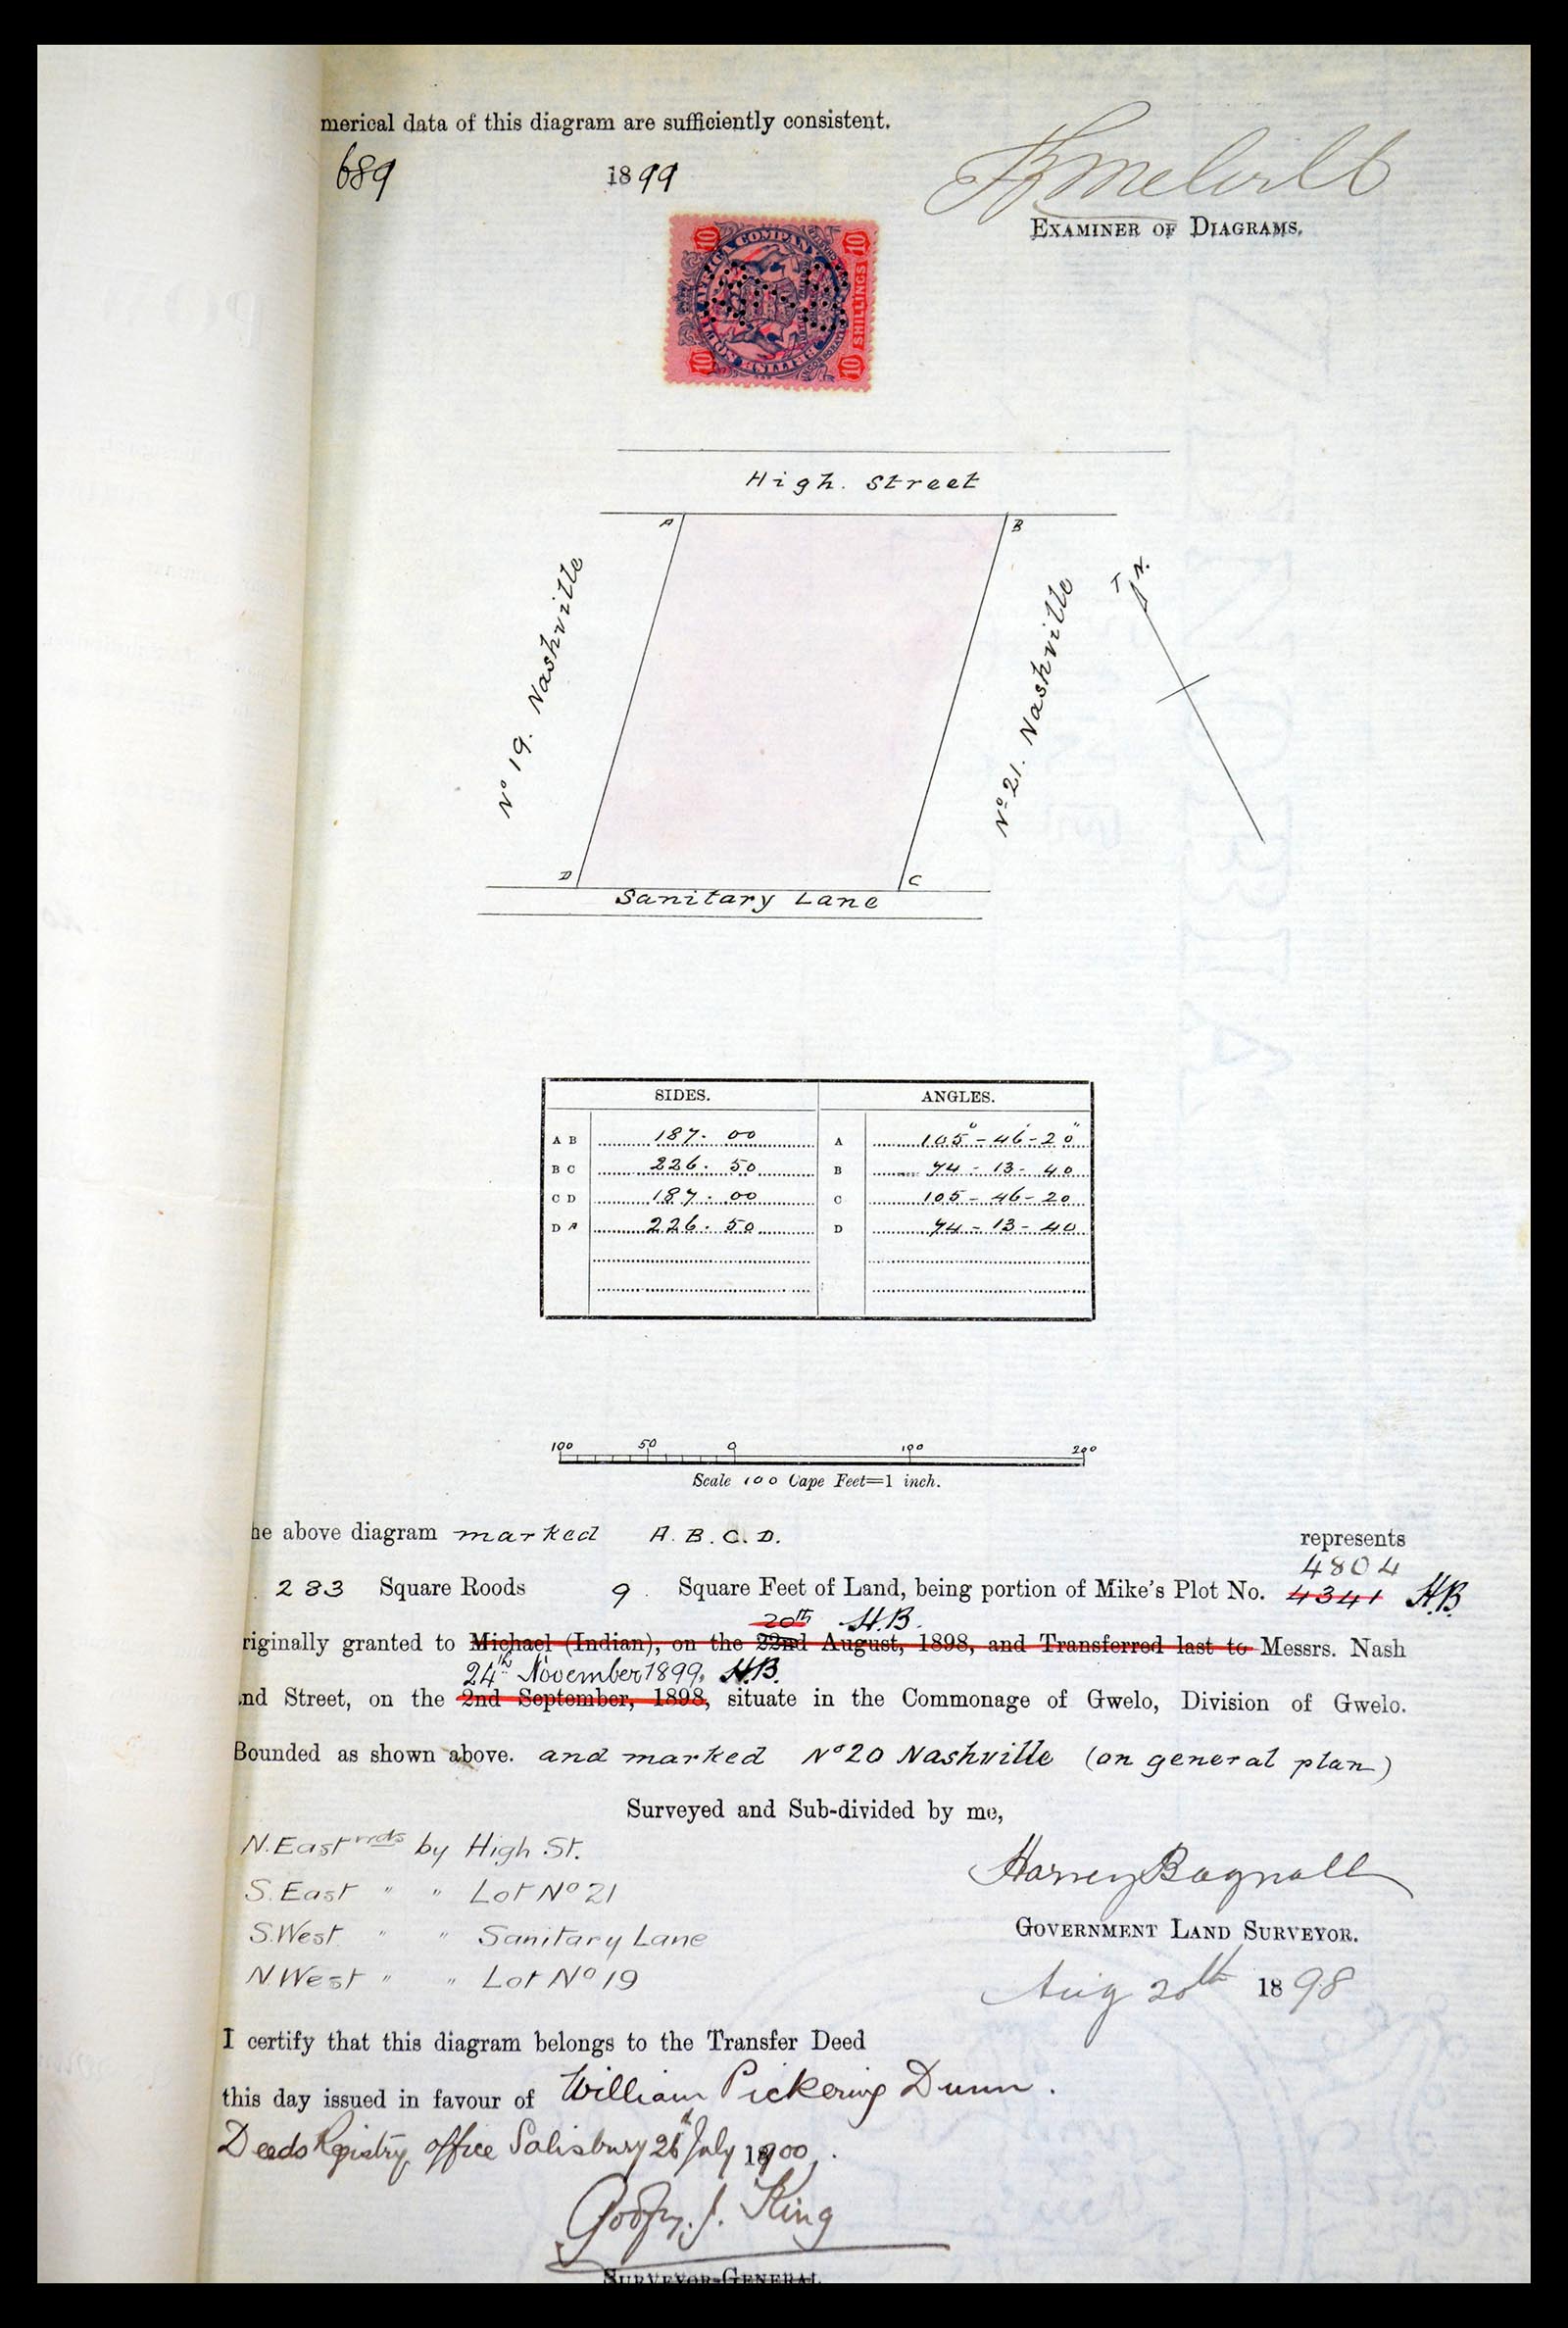 merical data of this diagram are sufficiently consistent.
689 1899
EXAMINER OF DIAGRAMS.
10 10
COMPANY
SHILLINGS
10 10
High. Street
A B
No 19. Nashville
No 21. Nashville
T N.
D C
Sanitary Lane
SIDES. ANGLES.
A B 187. 00 A 105° - 46' - 20"
B C 226. 50 B 74 - 13 - 40
C D 187. 00 C 105 - 46 - 20
D A 226. 50 D 74 - 13 - 40
100 50 0 100 200
Scale 100 Cape Feet=1 inch.
he above diagram marked A. B. C. D. represents
4804
283 Square Roods 9. Square Feet of Land, being portion of Mike's Plot No. 4341 H.B.
20th H.B.
riginally granted to Michael (Indian), on the 22nd August, 1898, and Transferred last to Messrs. Nash
24th November 1899. H.B.
nd Street, on the 2nd September, 1898, situate in the Commonage of Gwelo, Division of Gwelo.
Bounded as shown above. and marked No 20 Nashville (on general plan)
Surveyed and Sub-divided by me,
N. East wrds by High St.
S. East " " Lot No 21
S. West " " Sanitary Lane
N. West " " Lot No 19
Harvey Bagnall
GOVERNMENT LAND SURVEYOR.
Aug 20th 1898
I certify that this diagram belongs to the Transfer Deed
this day issued in favour of William Pickering Dunn.
Deeds Registry office Salisbury 26 July 1900.
King
SURVEYOR-GENERAL